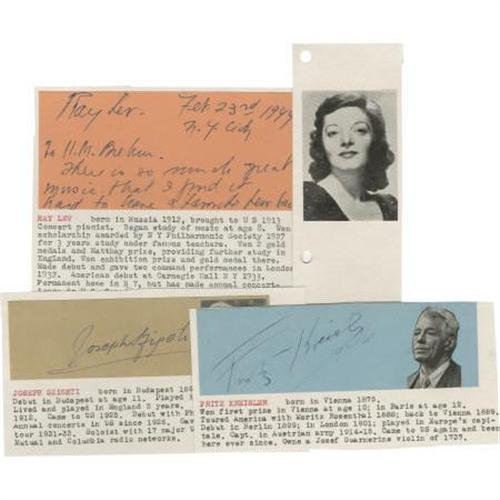 Ray Lev. Feb 23rd 1944
N.Y. City
To H.M. Brehm.
There is so much great
music, that I find it
hard to have a favorite
RAY LEV born in Russia 1912, brought to U S 1913
Concert pianist. Began study of music at age 8. Won
scholarship awarded by N Y Philharmonic Society 1927
for 3 years study under famous teachers. Won 2 gold
medals and Matthay prize, providing further study in
England. Won exhibition prize and gold medal there.
Made debut and gave two command performances in London
1932. American debut at Carnegie Hall N Y 1933.
Permanent home in N Y, but has made annual concert
Joseph Szigeti
JOSEPH SZIGETI born in Budapest 189
Debut in Budapest at age 11. Played
Lived and played in England 5 years
1912. Came to US 1925. Debut with Ph
Annual concerts in US since 1925. Gav
tour 1931-33. Soloist with 17 major
Mutual and Columbia radio networks.
Fritz Kreisler
FRITZ KREISLER born in Vienna 1875.
Won first prize in Vienna at age 10; in Paris at age 12.
Toured America with Moritz Rosenthal 1888; back to Vienna 1889.
Debut in Berlin 1899; in London 1901; played in Europe's capi-
tals, Capt. in Austrian army 1914-15. Came to US again and been
here ever since. Owns a Josef Guarnerius violin of 1737.